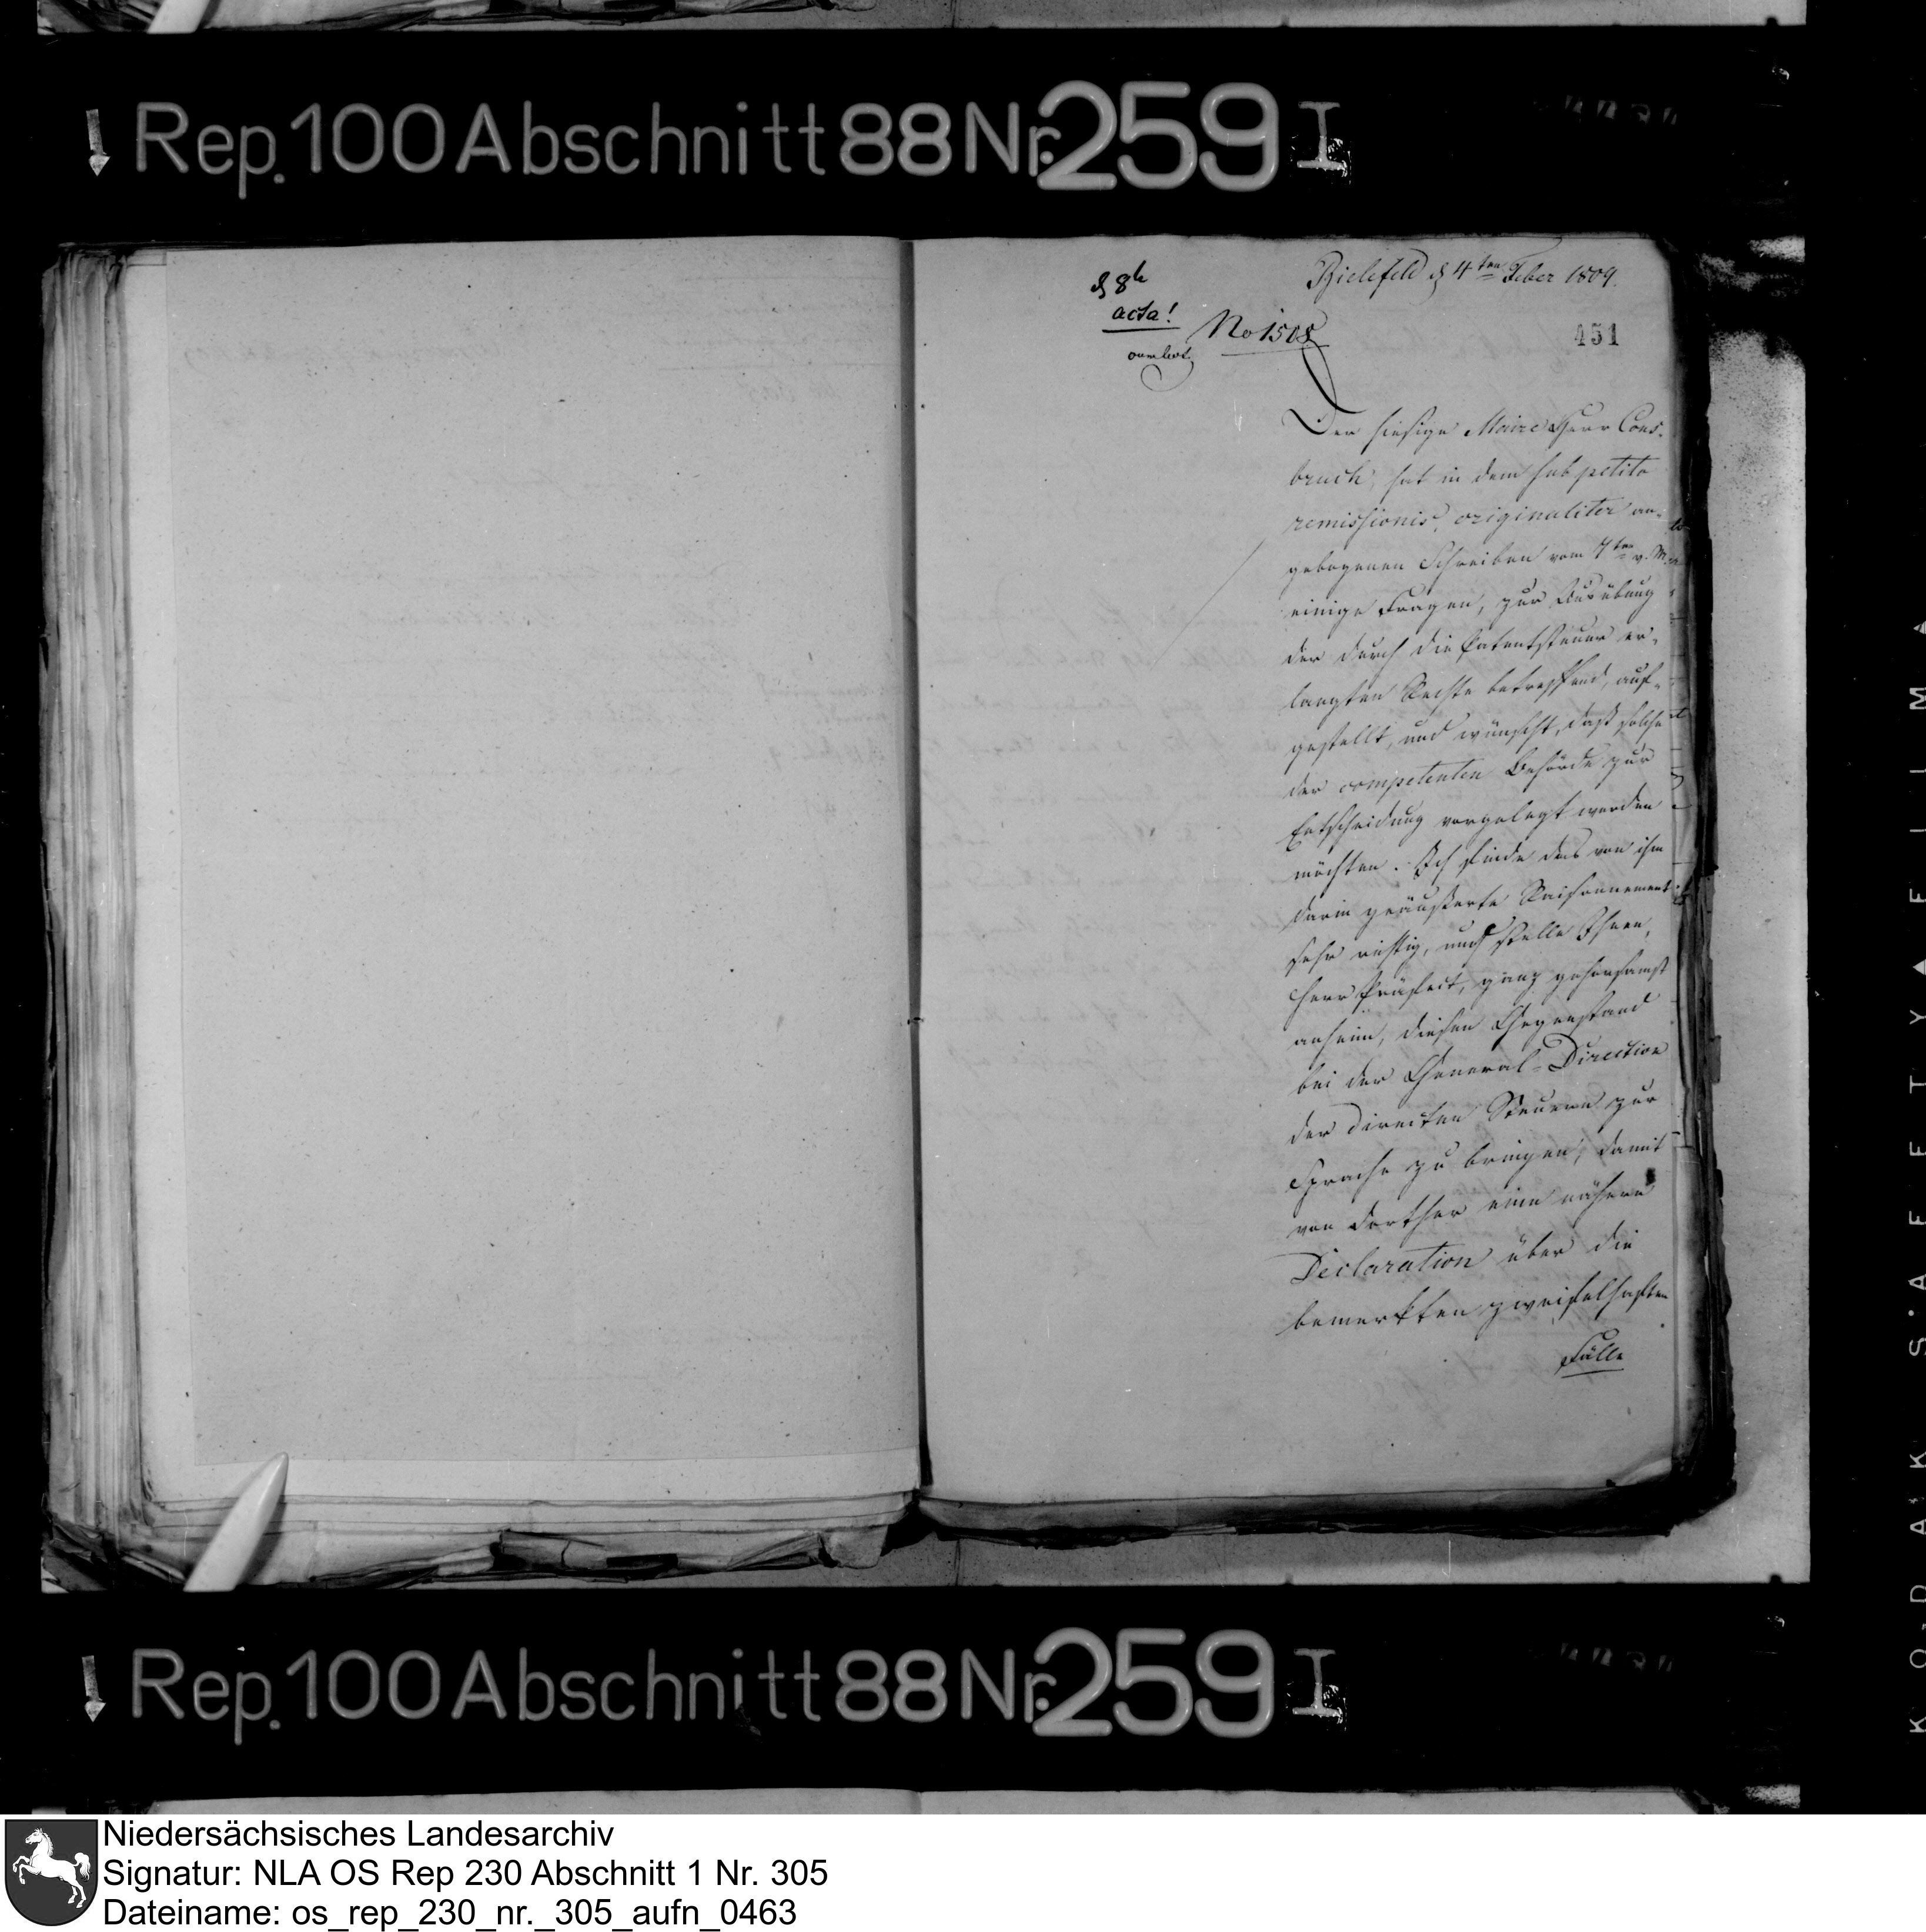 Rep. 100 Abschnitt 88 Nr. 259 I
Bielefeld d 4ten Feber 1809.
d 8t
acta!
No 1508
451
Der hiesige Maire Herr Cons-
bruch, hat in dem sub petito
remissionis, originaliter an-
gebogenen Schreiben vom 7ten v. M.
einige Fragen, zur Ausübung
der durch die Patentsteuer er-
langten Rechte betreffend, auf-
gestellt, und wünscht, daß solche
der competenten Behörde zur
Entscheidung vorgelegt werden
möchten. Ich finde das von ihm
darin geäußerte Raisonnement
sehr richtig, und stelle Ihnen,
Herr Präfect, ganz gehorsamst
anheim, diesen Gegenstand
bei der General-Direction
der directen Steuern zur
Sprache zu bringen, damit
von dorther eine nähere
Declaration über die
bemerkten zweifelhaften
Fälle
Rep. 100 Abschnitt 88 Nr. 259 I
KODAK SAFETY FILM
Niedersächsisches Landesarchiv
Signatur: NLA OS Rep 230 Abschnitt 1 Nr. 305
Dateiname: os_rep_230_nr._305_aufn_0463